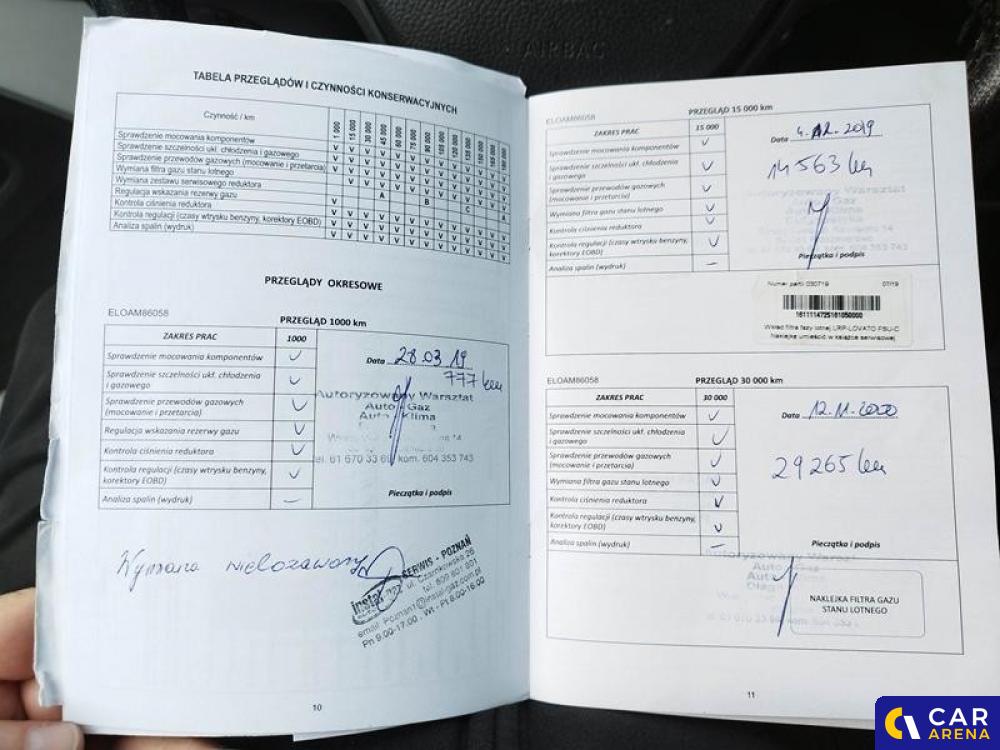 AIRBAG
TABELA PRZEGLĄDÓW I CZYNNOŚCI KONSERWACYJNYCH
Czynność / km 1 000 15 000 30 000 45 000 60 000 75 000 90 000 105 000 120 000 135 000 150 000 165 000
Sprawdzenie mocowania komponentów
Sprawdzenie szczelności ukł. chłodzenia i gazowego
Sprawdzenie przewodów gazowych (mocowanie i przetarcia)
Wymiana filtra gazu stanu lotnego
Wymiana zestawu serwisowego reduktora
Regulacja wskazania rezerwy gazu
Kontrola ciśnienia reduktora
Kontrola regulacji (czasy wtrysku benzyny, korektory EOBD)
Analiza spalin (wydruk)
PRZEGLĄDY OKRESOWE
ELOAM86058
PRZEGLĄD 1000 km
ZAKRES PRAC 1000
Sprawdzenie mocowania komponentów
Sprawdzenie szczelności ukł. chłodzenia
i gazowego
Sprawdzenie przewodów gazowych
(mocowanie i przetarcia)
Regulacja wskazania rezerwy gazu
Kontrola ciśnienia reduktora
Kontrola regulacji (czasy wtrysku benzyny,
korektory EOBD)
Analiza spalin (wydruk)
Data 28.03.19
777 km
Autoryzowany Warsztat
Auto Gaz
Auto Klima
tel. 61 670 33 kom. 604 353 743
Pieczątka i podpis
Wymiana
SERWIS - POZNAŃ
ul. Czarnkowska 26
instal gaz
Pn 9.00-17.00, Wt - Pt 8.00-16.00
10
PRZEGLĄD 15 000 km
ELOAM86058
ZAKRES PRAC 15 000
Sprawdzenie mocowania komponentów
Sprawdzenie szczelności ukł. chłodzenia
i gazowego
Sprawdzenie przewodów gazowych
(mocowanie i przetarcia)
Wymiana filtra gazu stanu lotnego
Kontrola ciśnienia reduktora
Kontrola regulacji (czasy wtrysku benzyny,
korektory EOBD)
Analiza spalin (wydruk)
Data 4.12.2019
14563 km
Autoryzowany Warsztat
Auto Gaz
Auto Klima
604 353 743
Pieczątka i podpis
Numer partii 030719 07/19
1611114725161050000
Wkład filtra fazy lotnej LRP-LOVATO FSU-C
Naklejkę umieścić w książce serwisowej
ELOAM86058
PRZEGLĄD 30 000 km
ZAKRES PRAC 30 000
Sprawdzenie mocowania komponentów
Sprawdzenie szczelności ukł. chłodzenia
i gazowego
Sprawdzenie przewodów gazowych
(mocowanie i przetarcia)
Wymiana filtra gazu stanu lotnego
Kontrola ciśnienia reduktora
Kontrola regulacji (czasy wtrysku benzyny,
korektory EOBD)
Analiza spalin (wydruk)
Data 12.11.2020
29265 km
Pieczątka i podpis
Autoryzowany Warsztat
Auto Gaz
Auto Klima
NAKLEJKA FILTRA GAZU
STANU LOTNEGO
11
CAR
ARENA